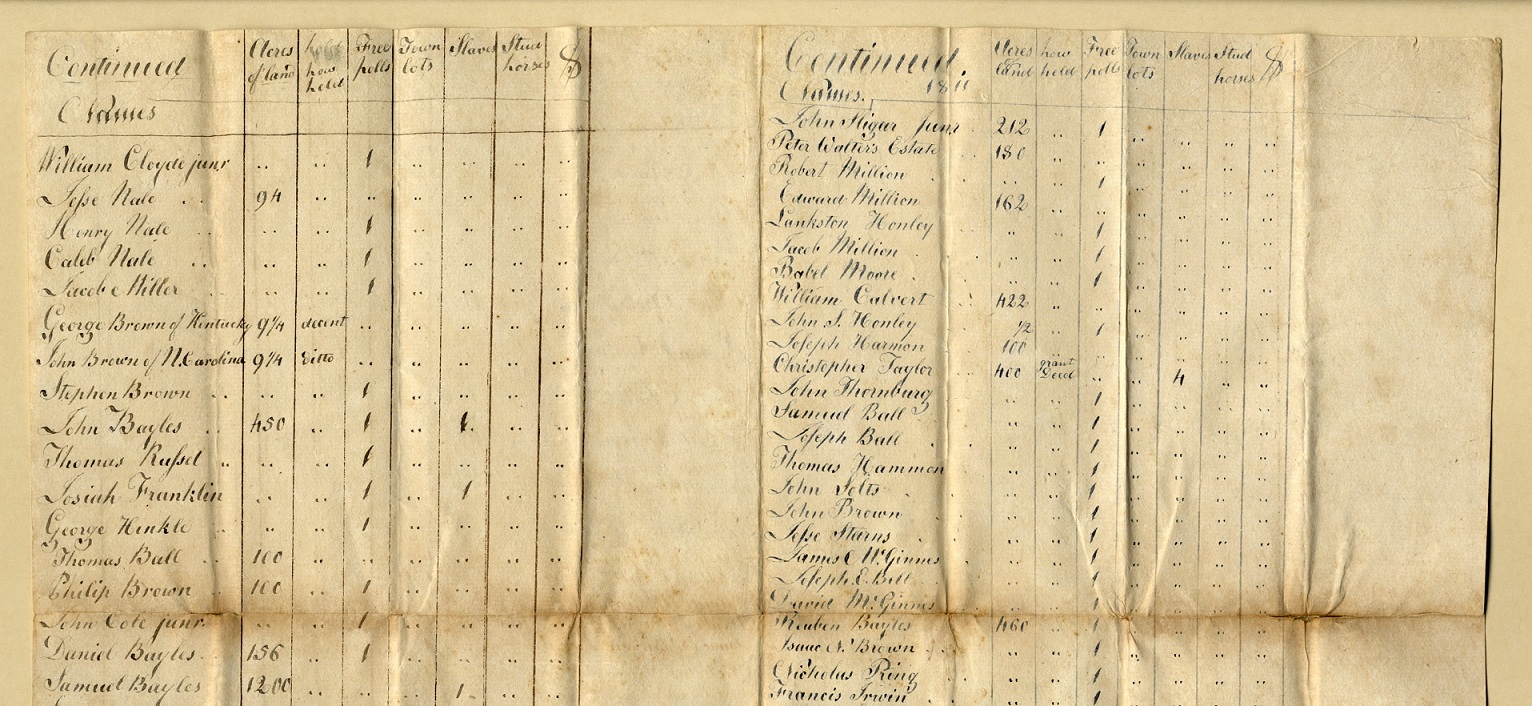 Continued Acres of land how held Free polls Town lots Slaves Stud horses $
Names
William Cloyde junr .. .. 1 .. .. .. ..
Jesse Nale .. 94 .. .. .. .. .. ..
Henry Nale .. .. .. 1 .. .. .. ..
Caleb Nale .. .. .. 1 .. .. .. ..
Jacob Miller .. .. .. 1 .. .. .. ..
George Brown of Kentucky 9 1/4 decent .. .. .. .. ..
John Brown of N. Carolina 9 1/4 Ditto .. .. .. .. ..
Stephen Brown .. .. .. 1 .. .. .. ..
John Bayles .. 450 .. 1 .. 1 .. ..
Thomas Russel .. .. .. 1 .. .. .. ..
Josiah Franklin .. .. 1 .. 1 .. ..
George Hinkle .. .. .. 1 .. .. .. ..
Thomas Ball .. 100 .. .. .. .. .. ..
Philip Brown .. 100 .. 1 .. .. .. ..
John Cole junr .. .. 1 .. .. .. ..
Daniel Bayles .. 156 .. 1 .. .. .. ..
Samuel Bayles 1200 .. .. .. 1 .. ..
Continued Acres land how held Free polls Town lots Slaves Stud horses $
Names. 1811
John Sligar junr 212 .. 1 .. .. .. ..
Peter Walters Estate 180 .. .. .. .. .. ..
Robert Million .. .. 1 .. .. .. ..
Edward Million 162 .. .. .. .. .. ..
Lankston Honley .. .. 1 .. .. .. ..
Jacob Million .. .. 1 .. .. .. ..
Babel Moore .. .. 1 .. .. .. ..
William Calvert 422 .. .. .. .. .. ..
John S. Honley 1/2 .. 1 .. .. .. ..
Joseph Harmon 100 .. .. .. .. ..
Christopher Taylor 400 grant Deed .. .. 4 .. ..
John Thornburg .. .. 1 .. .. .. ..
Samuel Ball .. .. 1 .. .. .. ..
Joseph Ball .. .. 1 .. .. .. ..
Thomas Hammon .. .. 1 .. .. .. ..
John Solts .. .. 1 .. .. .. ..
John Brown .. .. 1 .. .. .. ..
Jesse Starns .. .. 1 .. .. .. ..
James C McGinnes .. .. 1 .. .. .. ..
Joseph E. Bell .. .. 1 .. .. .. ..
David McGinnes .. .. 1 .. .. .. ..
Reuben Bayles 460 .. 1 .. .. .. ..
Isaac N. Brown .. .. 1 .. .. .. ..
Nicholas Ring .. .. 1 .. .. .. ..
Francis Irwin .. .. 1 .. .. .. ..